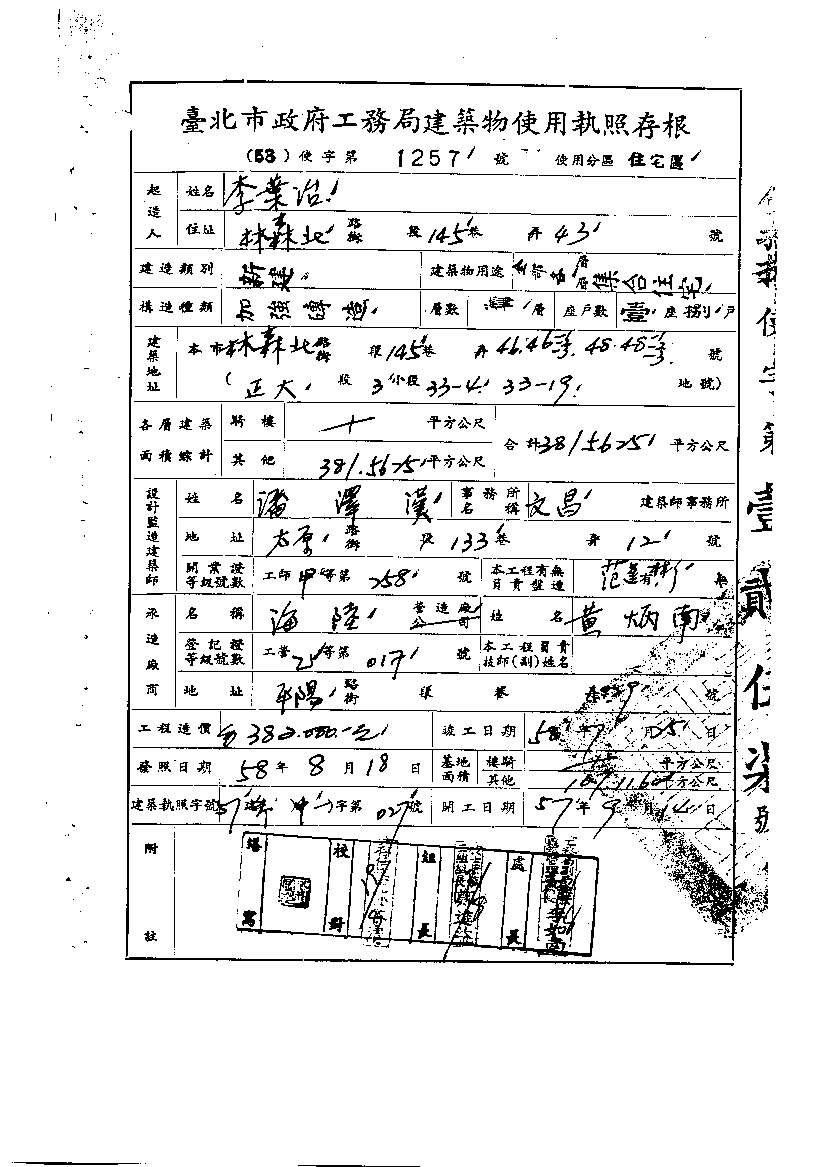 臺北市政府工務局建築物使用執照存根
(58)使字第 1257 號 使用分區 住宅區
起造人 姓名 李葉治
住址 林森北路街 段 145 巷 弄 43 號
建造類別 新建 建築物用途 全部各層集合住宅
構造種類 加強磚造 層數 肆層 座戶數 壹座捌戶
建築地址 本市林森北路街 段 145 巷 弄 46. 46 48. 48 號
(正大 段 3 小段 33-4. 33-19. 地號)
各層建築面積總計 騎樓 平方公尺 合計 381.5625 平方公尺
其他 381.5625 平方公尺
設計監造建築師 姓名 潘澤漢 事務所名稱 文昌 建築師事務所
地址 太原路街 段 133 巷 弄 12 號
開業證等級號數 工師甲等第 258 號 本工程有無員責監造
承造廠商 名稱 海陸 營造廠公司 姓名 黃炳南
登記證等級號數 工營乙等第 017 號 本工程員責技師(副)姓名
地址 平陽路街 段 巷 弄 9 號
工程造價 382.000.-元 竣工日期 58 年 7 月 25 日
發照日期 58 年 8 月 18 日 基地面積 樓騎 平方公尺
其他 平方公尺
建築執照字號 57 建 字第 027 號 開工日期 57 年 9 月 14 日
附註
繕寫 校對 組長 處長
使字第壹貳伍柒號